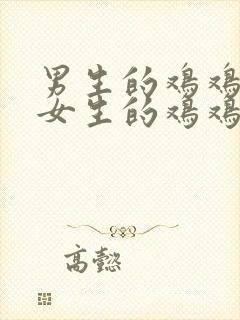 男生的鸡鸡
女生的鸡鸡
高懿